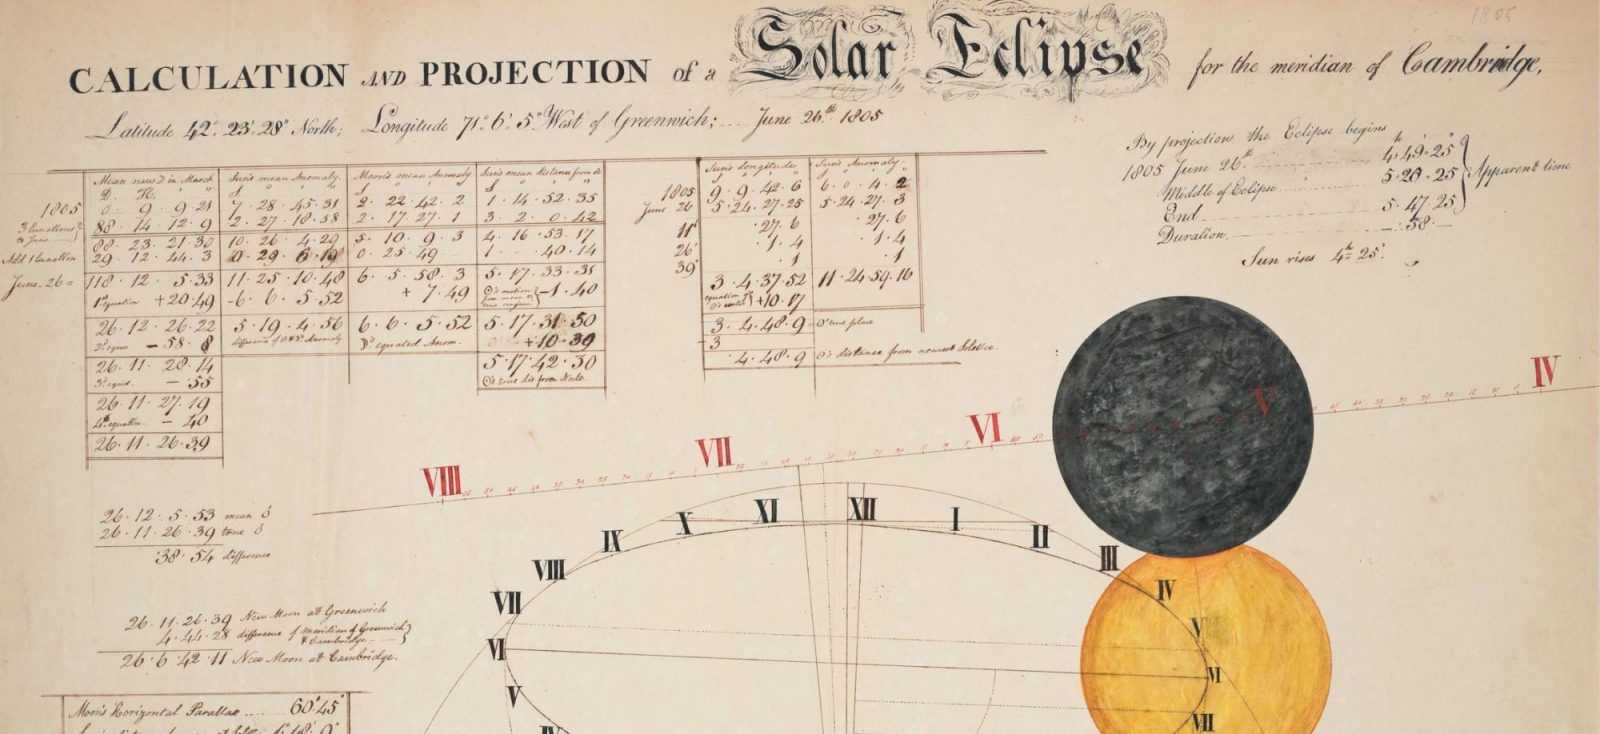 1805
CALCULATION AND PROJECTION of a Solar Eclipse for the meridian of Cambridge,
Latitude 42°. 23'. 28" North; Longitude 71°. 6'. 5" West of Greenwich; .... June 26.th 1805
By projection the Eclipse begins
1805 June 26th 4h. 49'. 25"
Middle of Eclipse 5. 20. 25
End 5. 47. 25
Duration. 58. —
Apparent time
Sun rises 4h 25'.
Mean new ☽ in March Sun's mean Anomaly. Moon's mean Anomaly Sun's mean distance from
D. H. ' "
1805 0. 9. 9. 21 7. 28. 45. 31 2. 22. 42. 2 1. 14. 52. 35
3 lunations to June 88. 14. 12. 9 2. 27. 18. 58 2. 17. 27. 1 3. 2. 0. 42
88. 23. 21. 30 10. 26. 4. 29 5. 10. 9. 3 4. 16. 53. 17
Add 1 lunation 29. 12. 44. 3 0. 29. 6. 19 0. 25. 49 1. 40. 14
June. 26 = 118. 12. 5. 33 11. 25. 10. 48 6. 5. 58. 3 5. 17. 33. 31
1st equation +20. 49 -6. 6. 5. 52 + 7. 49 -1. 40
26. 12. 26. 22 5. 19. 4. 56 6. 6. 5. 52 5. 17. 31. 50
2d. equa. - 58. 8 ☽'s equated Anom. +10. 39
26. 11. 28. 14 5. 17. 42. 30
3d. equa. - 55 ☉'s true dis from Node.
26. 11. 27. 19
4th. equation. - 40
26. 11. 26. 39
Sun's longitude Sun's Anomaly.
1805 9. 9. 42. 6 6. 0. 4. 2
June 26 5. 24. 27. 25 5. 24. 27. 3
11h . 27. 6 . 27. 6
26' . 1. 4 . 1. 4
39" . 1 . 1
3. 4. 37. 52 11. 24. 59. 16
+10. 17
3. 4. 48. 9 ☉'s true place
-3
. 4. 48. 9 ☉'s distance from nearest Solstice.
VIII VII VI V IV
26. 12. 5. 53 mean ☌
26. 11. 26. 39 true ☌
38. 54 difference
26. 11. 26. 39 New Moon at Greenwich
4. 44. 28 difference of meridian of Greenwich & Cambridge
26. 6. 42. 11 New Moon at Cambridge.
Moon's Horizontal Parallax ..... 60'. 45"
IV V VI VII VIII IX X XI XII I II III IV V VI VII